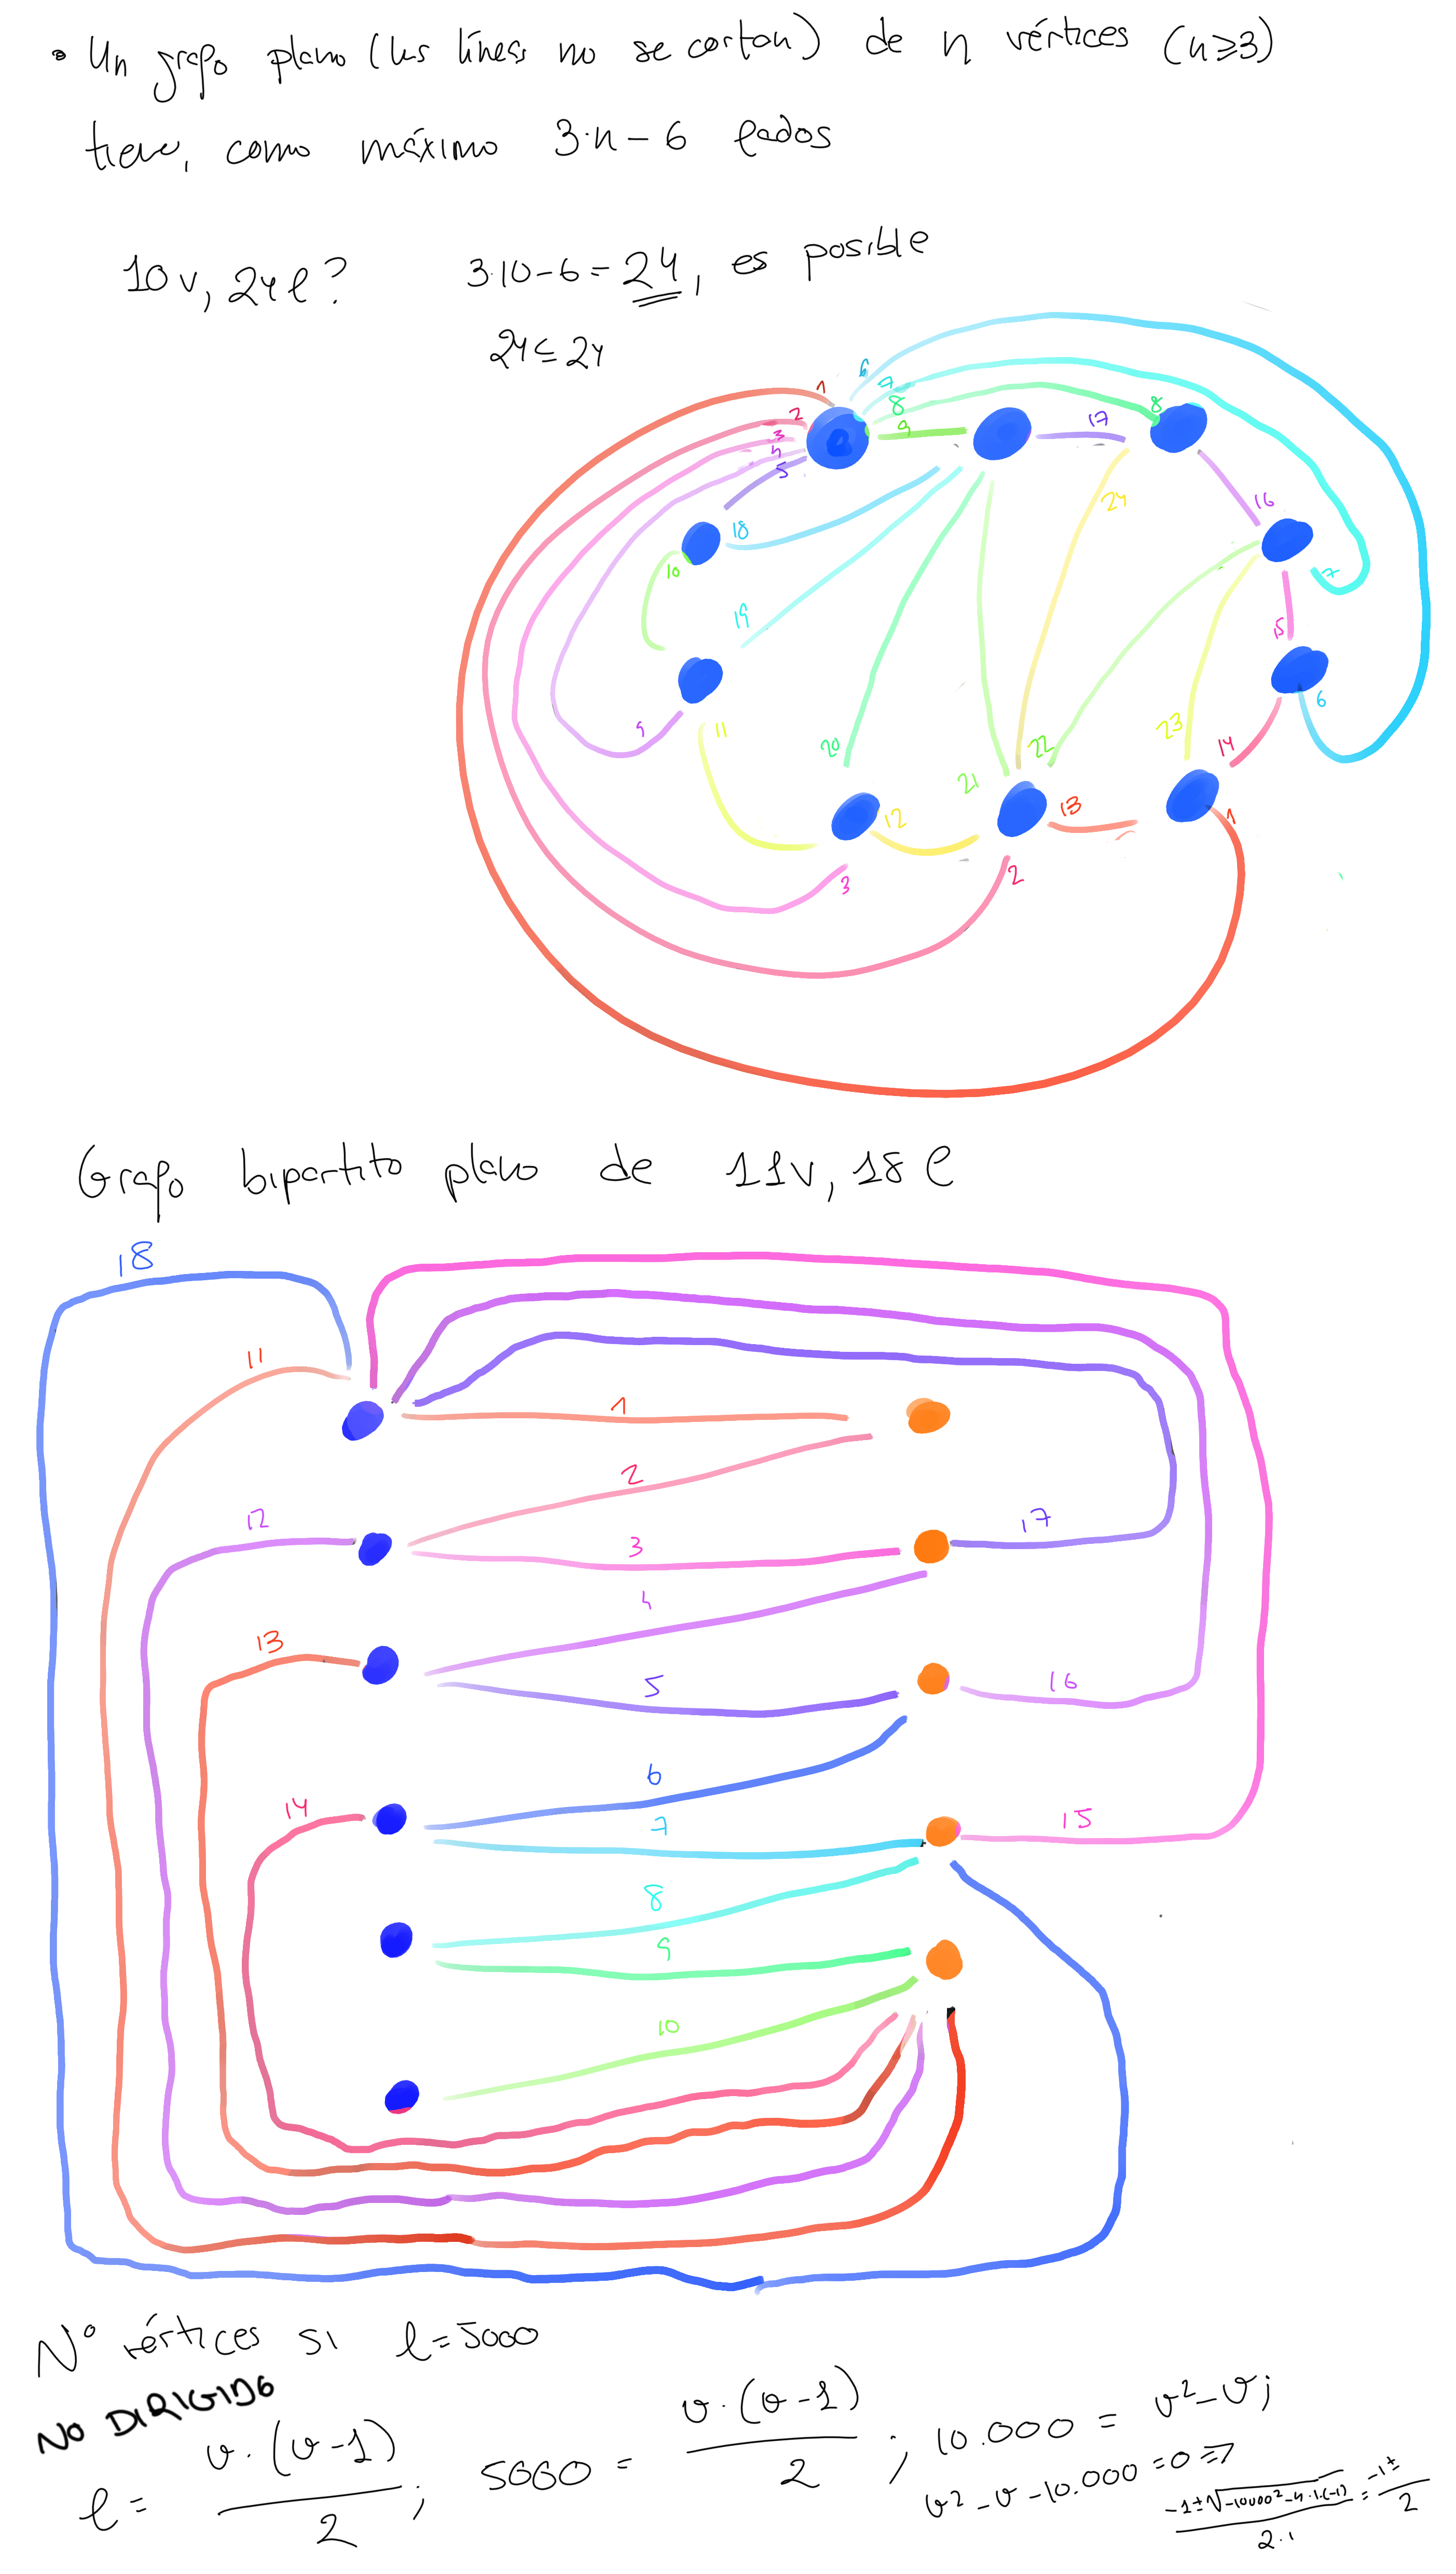 • Un grafo plano (las líneas no se cortan) de n vértices (n≥3)
tiene, como máximo 3·n-6 lados
10v, 24l? 3·10-6=24, es posible
24≤24
6
1 7
2 8 8
3 9 17
4
5
24
16
18
10 7
19
15
9 11 6
20 22 23 14
21
12 13 1
3 2
Grafo bipartito plano de 11v, 18l
18
11
1
2
12 3 17
4
13
5 16
6
14 7 15
8
9
10
Nº vértices si l=5000
NO DIRIGIDO
l = v·(v-1)/2; 5000 = v·(v-1)/2; 10.000 = v²-v;
v²-v-10.000=0 ⇒
-1±√-10000²-4·1·(-1)/2·1 = -1±/2